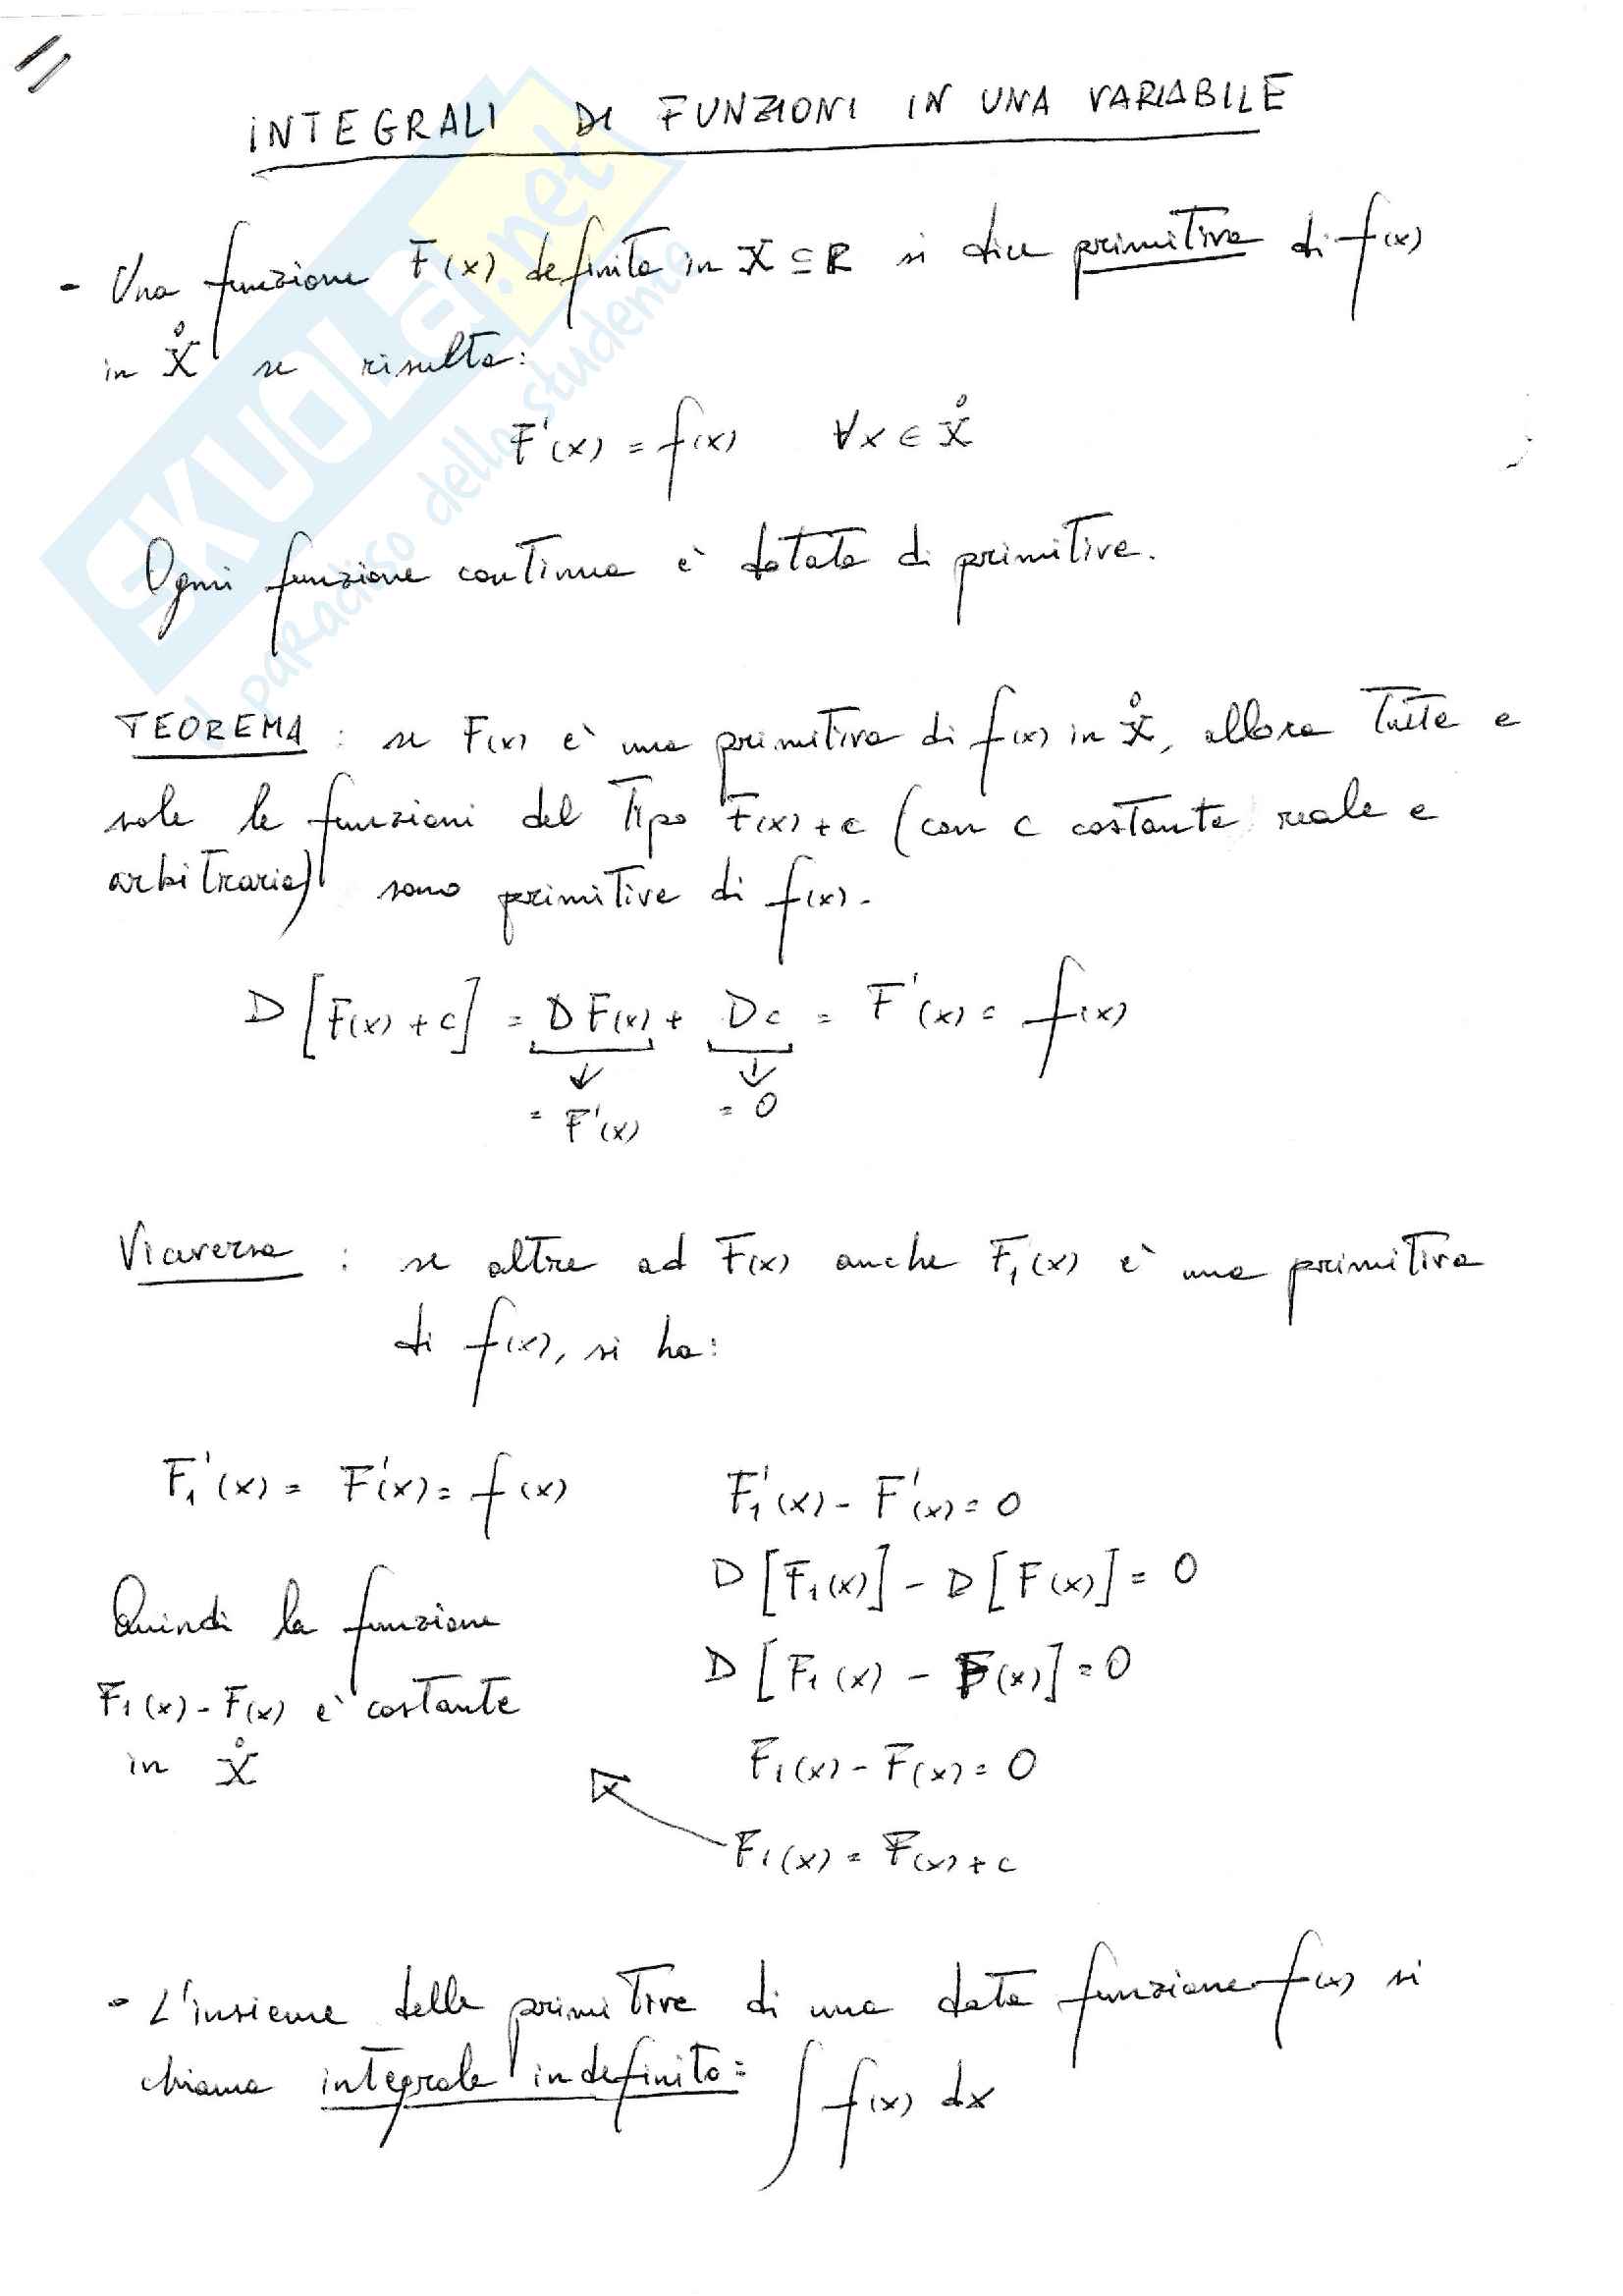 INTEGRALI DI FUNZIONI IN UNA VARIABILE
- Una funzione F(x) definita in X ⊆ R si dice primitiva di f(x)
in X̊ se risulta:
F'(x) = f(x) ∀x ∈ X̊
Ogni funzione continua è dotata di primitive.
TEOREMA : se F(x) è una primitiva di f(x) in X̊, allora tutte e
sole le funzioni del tipo F(x)+c (con c costante reale e
arbitraria) sono primitive di f(x).
D [F(x)+c] = D F(x) + Dc = F'(x) = f(x)
↓ ↓
= F'(x) = 0
Viceversa : se oltre ad F(x) anche F₁(x) è una primitiva
di f(x), si ha:
F₁'(x) = F'(x) = f(x)
Quindi la funzione
F₁(x) - F(x) è costante
in X̊
F₁'(x) - F'(x) = 0
D [F₁(x)] - D [F(x)] = 0
D [F₁(x) - F(x)] = 0
F₁(x) - F(x) = 0
F₁(x) = F(x) + c
- L'insieme delle primitive di una data funzione f(x) si
chiama integrale indefinito: ∫ f(x) dx
SKUOLa.net
il paradiso dello studente